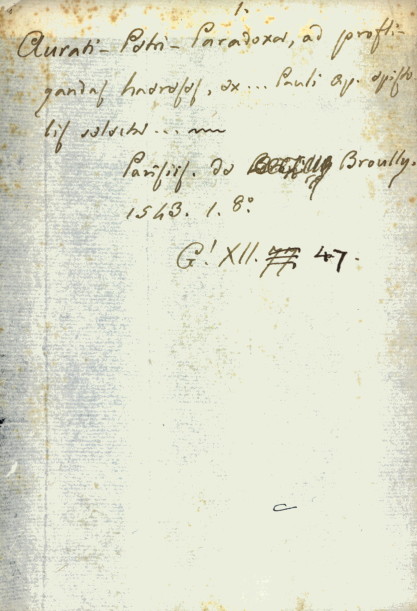 1.
Aurati- Petri- Paradoxa, ad profli-
gandas haereses, ex... Pauli Ap. episto
lis selecta...
Parisiis. de Broully.
1543. 1. 8º.
G! XII. 47.